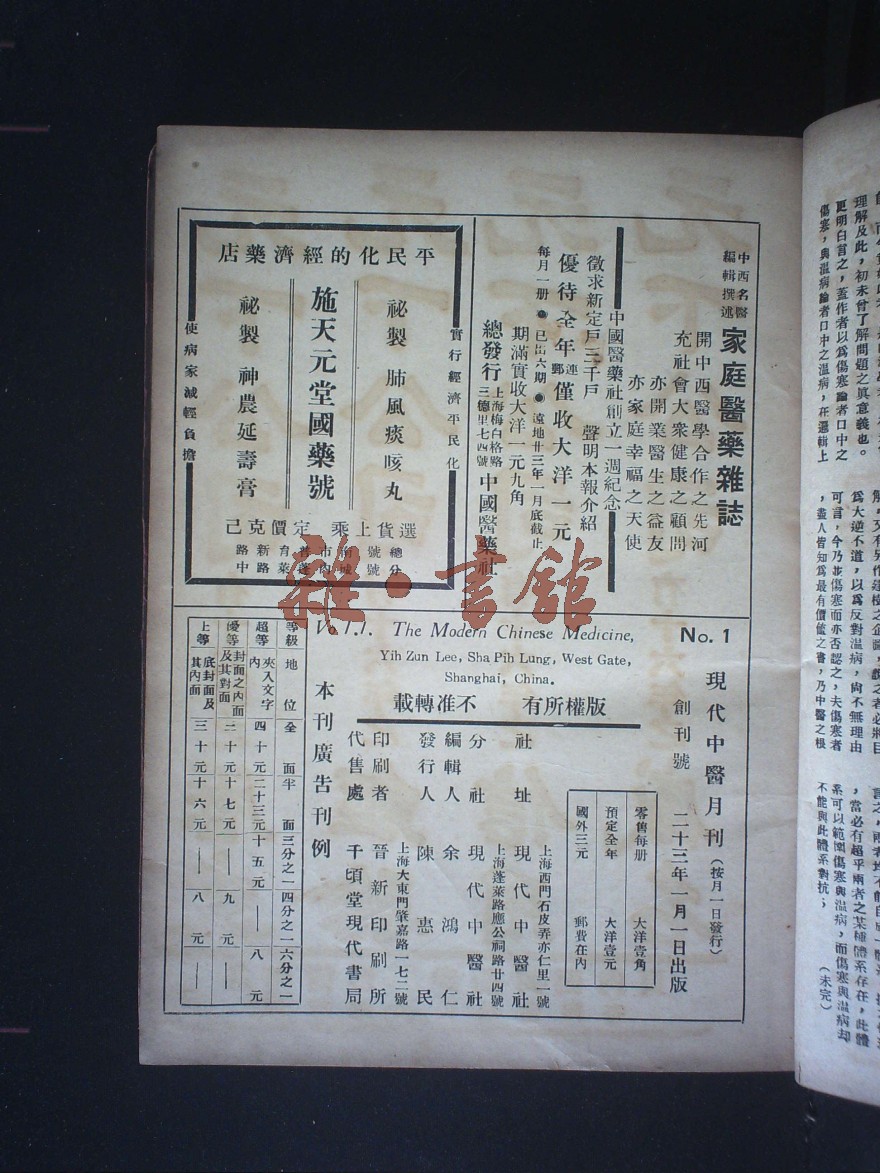 中西名醫
編輯撰述
家庭醫藥雜誌
開中西醫學合作之先河
充社會大衆健康之顧問
亦開業醫生之益友
亦家庭幸福之天使
中國醫藥社創立一週紀念
徵求新定戶三千戶 聲明本報介紹
優待全年連郵僅收大洋一元
每月一册●已出六期●遠地廿三年一月底截止
期滿實收大洋一元九角
總發行 上海梅白格路三德里七四號 中國醫藥社
平民化的經濟藥店
實行經濟平民化
祕製 肺風痰咳丸
施天元堂國藥號
祕製 神農延壽膏
使病家減輕負擔
選貨上乘 定價克己
雜·書館
No. 1
Vol.1. The Modern Chinese Medicine,
Yih Zun Lee, Sha Pih Lung, West Gate,
Shanghai, China.
版權所有 不准轉載
現代中醫月刊(按月一日發行)
創刊號 二十三年一月一日出版
零售每册 大洋壹角
預定全年 大洋壹元
國外三元 郵費在內
社址 上海西門石皮弄亦仁里一號 現代中醫社
分社 上海蓬萊路應公祠路廿四號 現代中醫社
編輯人 余鴻仁
發行人 陳惠民
印刷者 上海大東門肇嘉路一七二號 晉新印刷所
代售處 千頃堂現代書局
本刊廣告刊例
等級 地位 全面 半面 三分之一 四分之一 六分之一
超等 夾入文字內 四十元 二十三元 十五元 — 八元
優等 封面之內面及其對面 二十元 十七元 — 九元 —
上等 底封面及其內面 三十元 十六元 — 八元 —
理解及此,初未曾了解問題之眞意義也。
更明白言之,蓋作者以爲傷寒論者口中之
傷寒,與溫病論者口中之溫病,在邏輯上
爲大逆不道,以爲反對溫病,尚不無理由
可言,今乃並傷寒而亦否認之,夫傷寒者
,盡人皆知爲最有價值之書,乃中醫之根
,當必有超乎兩者之某種體系存在,此體
系可以範圍傷寒與溫病,而傷寒與溫病却
不能與此體系對抗;(未完)